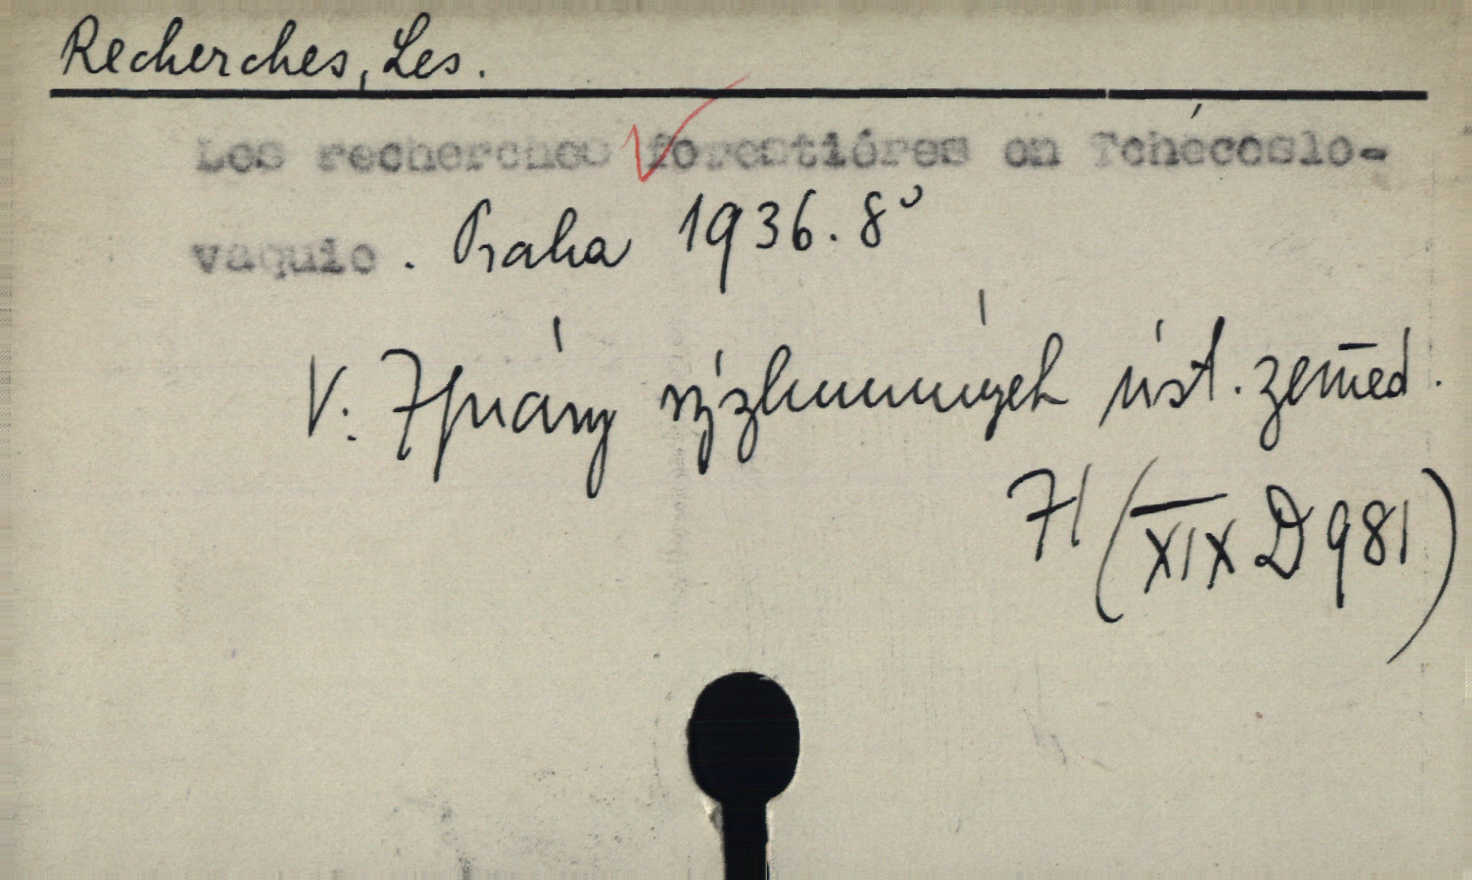 Recherches, Les.
Les recherches forestiéres en Tchécoslo-
vaquie. Praha 1936. 8°
V. Zprávy výzkumných úst. zeměd.
71 (XIX D 981)